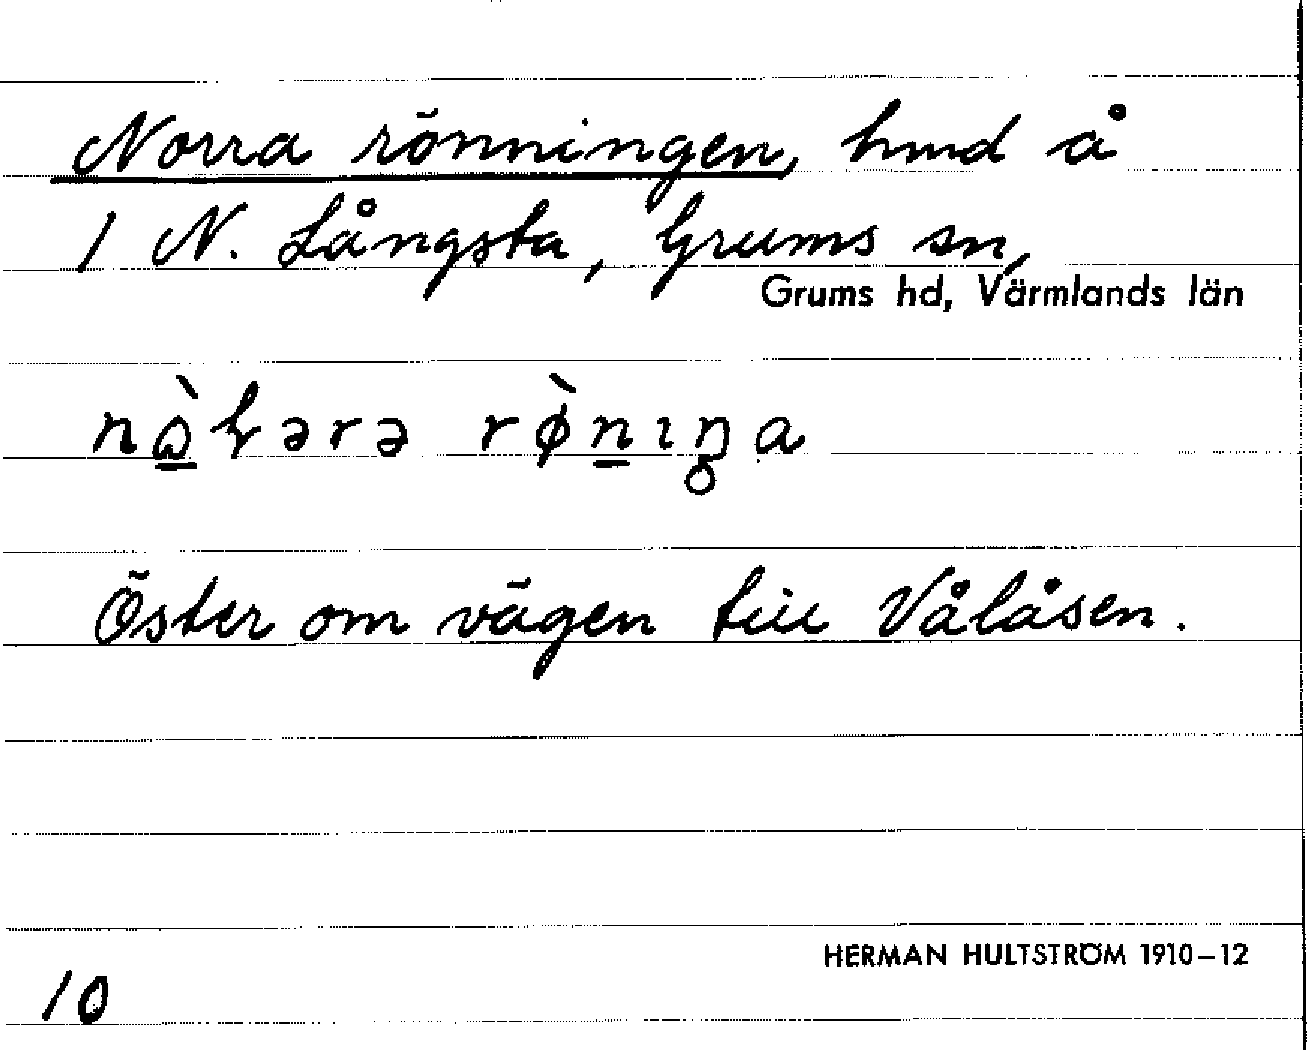 Norra rönningen, hmd å
1 N. Långsta, Grums sn,
Grums hd, Värmlands län
Öster om vägen till Vålåsen.
HERMAN HULTSTRÖM 1910–12
10